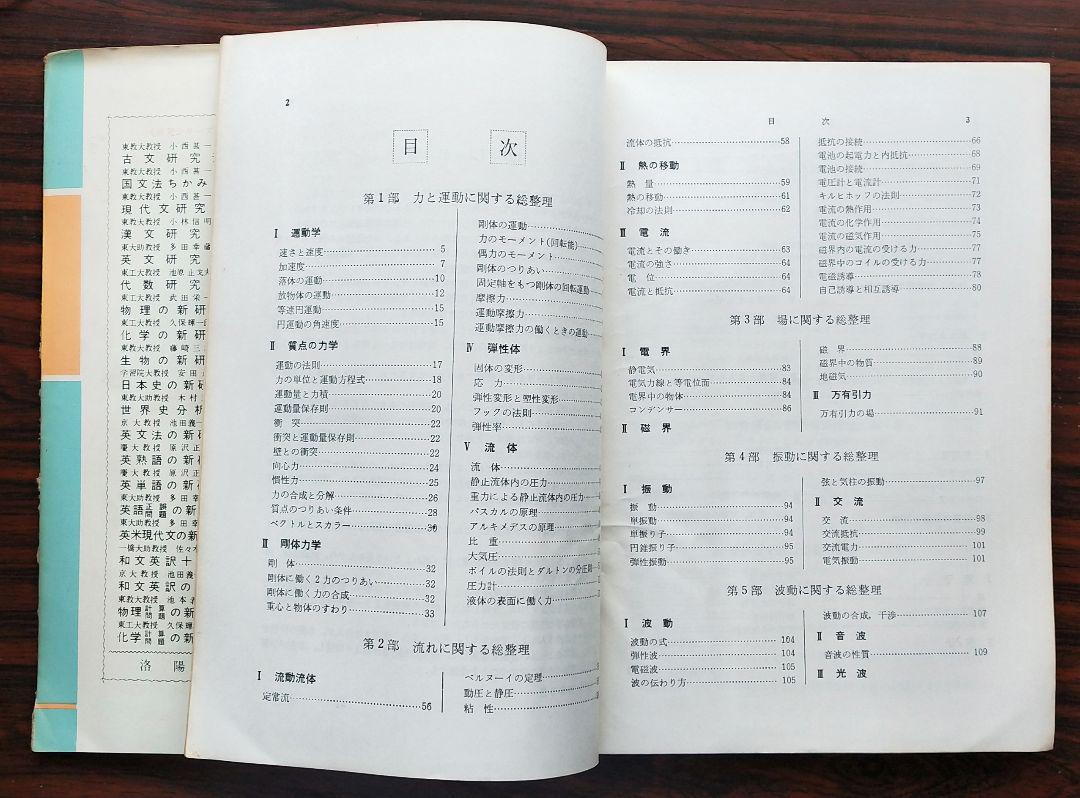 東教大教授 小西甚一
古文研究
東教大教授 小西甚一
国文法ちかみ
東教大教授 小西甚一
現代文研究
東教大教授 小林信明
漢文研究
東大助教授 多田幸蔵
英文研究
東工大教授 池原止戈夫
代数研究
東工大教授 武田栄一
物理の新研
東工大教授 久保輝一郎
化学の新研
東教大教授 藤崎三
生物の新研
学習院大教授 安田
日本史の新研
東教大助教授 木村
世界史分析
京大教授 池田義一
英文法の新研
慶大教授 原沢正
英熟語の新研
慶大教授 原沢正
英単語の新研
東大助教授 多田幸
英語正誤問題の新研
東大助教授 多田幸
英米現代文の新研
一橋大助教授 佐々木
和文英訳十
京大教授 池田義
和文英訳の
東教大教授 池本
物理計算問題の新
東工大教授 久保輝
化学計算問題の新
洛陽
2
目次
第1部 力と運動に関する総整理
Ⅰ 運動学
速さと速度 5
加速度 7
落体の運動 10
放物体の運動 12
等速円運動 15
円運動の角速度 15
Ⅱ 質点の力学
運動の法則 17
力の単位と運動方程式 18
運動量と力積 20
運動量保存則 20
衝突 22
衝突と運動量保存則 22
壁との衝突 22
向心力 24
慣性力 25
力の合成と分解 26
質点のつりあい条件 28
ベクトルとスカラー 30
Ⅲ 剛体力学
剛体 32
剛体に働く2力のつりあい 32
剛体に働く力の合成 32
重心と物体のすわり 33
剛体の運動
力のモーメント(回転能)
偶力のモーメント
剛体のつりあい
固定軸をもつ剛体の回転運動
摩擦力
運動摩擦力
運動摩擦力の働くときの運動
Ⅳ 弾性体
固体の変形
応力
弾性変形と塑性変形
フックの法則
弾性率
Ⅴ 流体
流体
静止流体内の圧力
重力による静止流体内の圧力
パスカルの原理
アルキメデスの原理
比重
大気圧
ボイルの法則とダルトンの分圧則
圧力計
液体の表面に働く力
第2部 流れに関する総整理
Ⅰ 流動流体
定常流 56
ベルヌーイの定理
動圧と静圧
粘性
目次 3
流体の抵抗 58
Ⅱ 熱の移動
熱量 59
熱の移動 61
冷却の法則 62
Ⅲ 電流
電流とその働き 63
電流の強さ 64
電位 64
電流と抵抗 64
抵抗の接続 66
電池の起電力と内抵抗 68
電池の接続 69
電圧計と電流計 71
キルヒホッフの法則 72
電流の熱作用 73
電流の化学作用 74
電流の磁気作用 75
磁界内の電流の受ける力 77
磁界中のコイルの受ける力 77
電磁誘導 78
自己誘導と相互誘導 80
第3部 場に関する総整理
Ⅰ 電界
静電気 83
電気力線と等電位面 84
電界中の物体 84
コンデンサー 86
Ⅱ 磁界
磁界 88
磁界中の物質 89
地磁気 90
Ⅲ 万有引力
万有引力の場 91
第4部 振動に関する総整理
Ⅰ 振動
振動 94
単振動 94
単振り子 94
円錐振り子 95
弾性振動 95
弦と気柱の振動 97
Ⅱ 交流
交流 98
交流抵抗 99
交流電力 101
電気振動 101
第5部 波動に関する総整理
Ⅰ 波動
波動の式 104
弾性波 104
電磁波 105
波の伝わり方 105
波動の合成,干渉 107
Ⅱ 音波
音波の性質 109
Ⅲ 光波